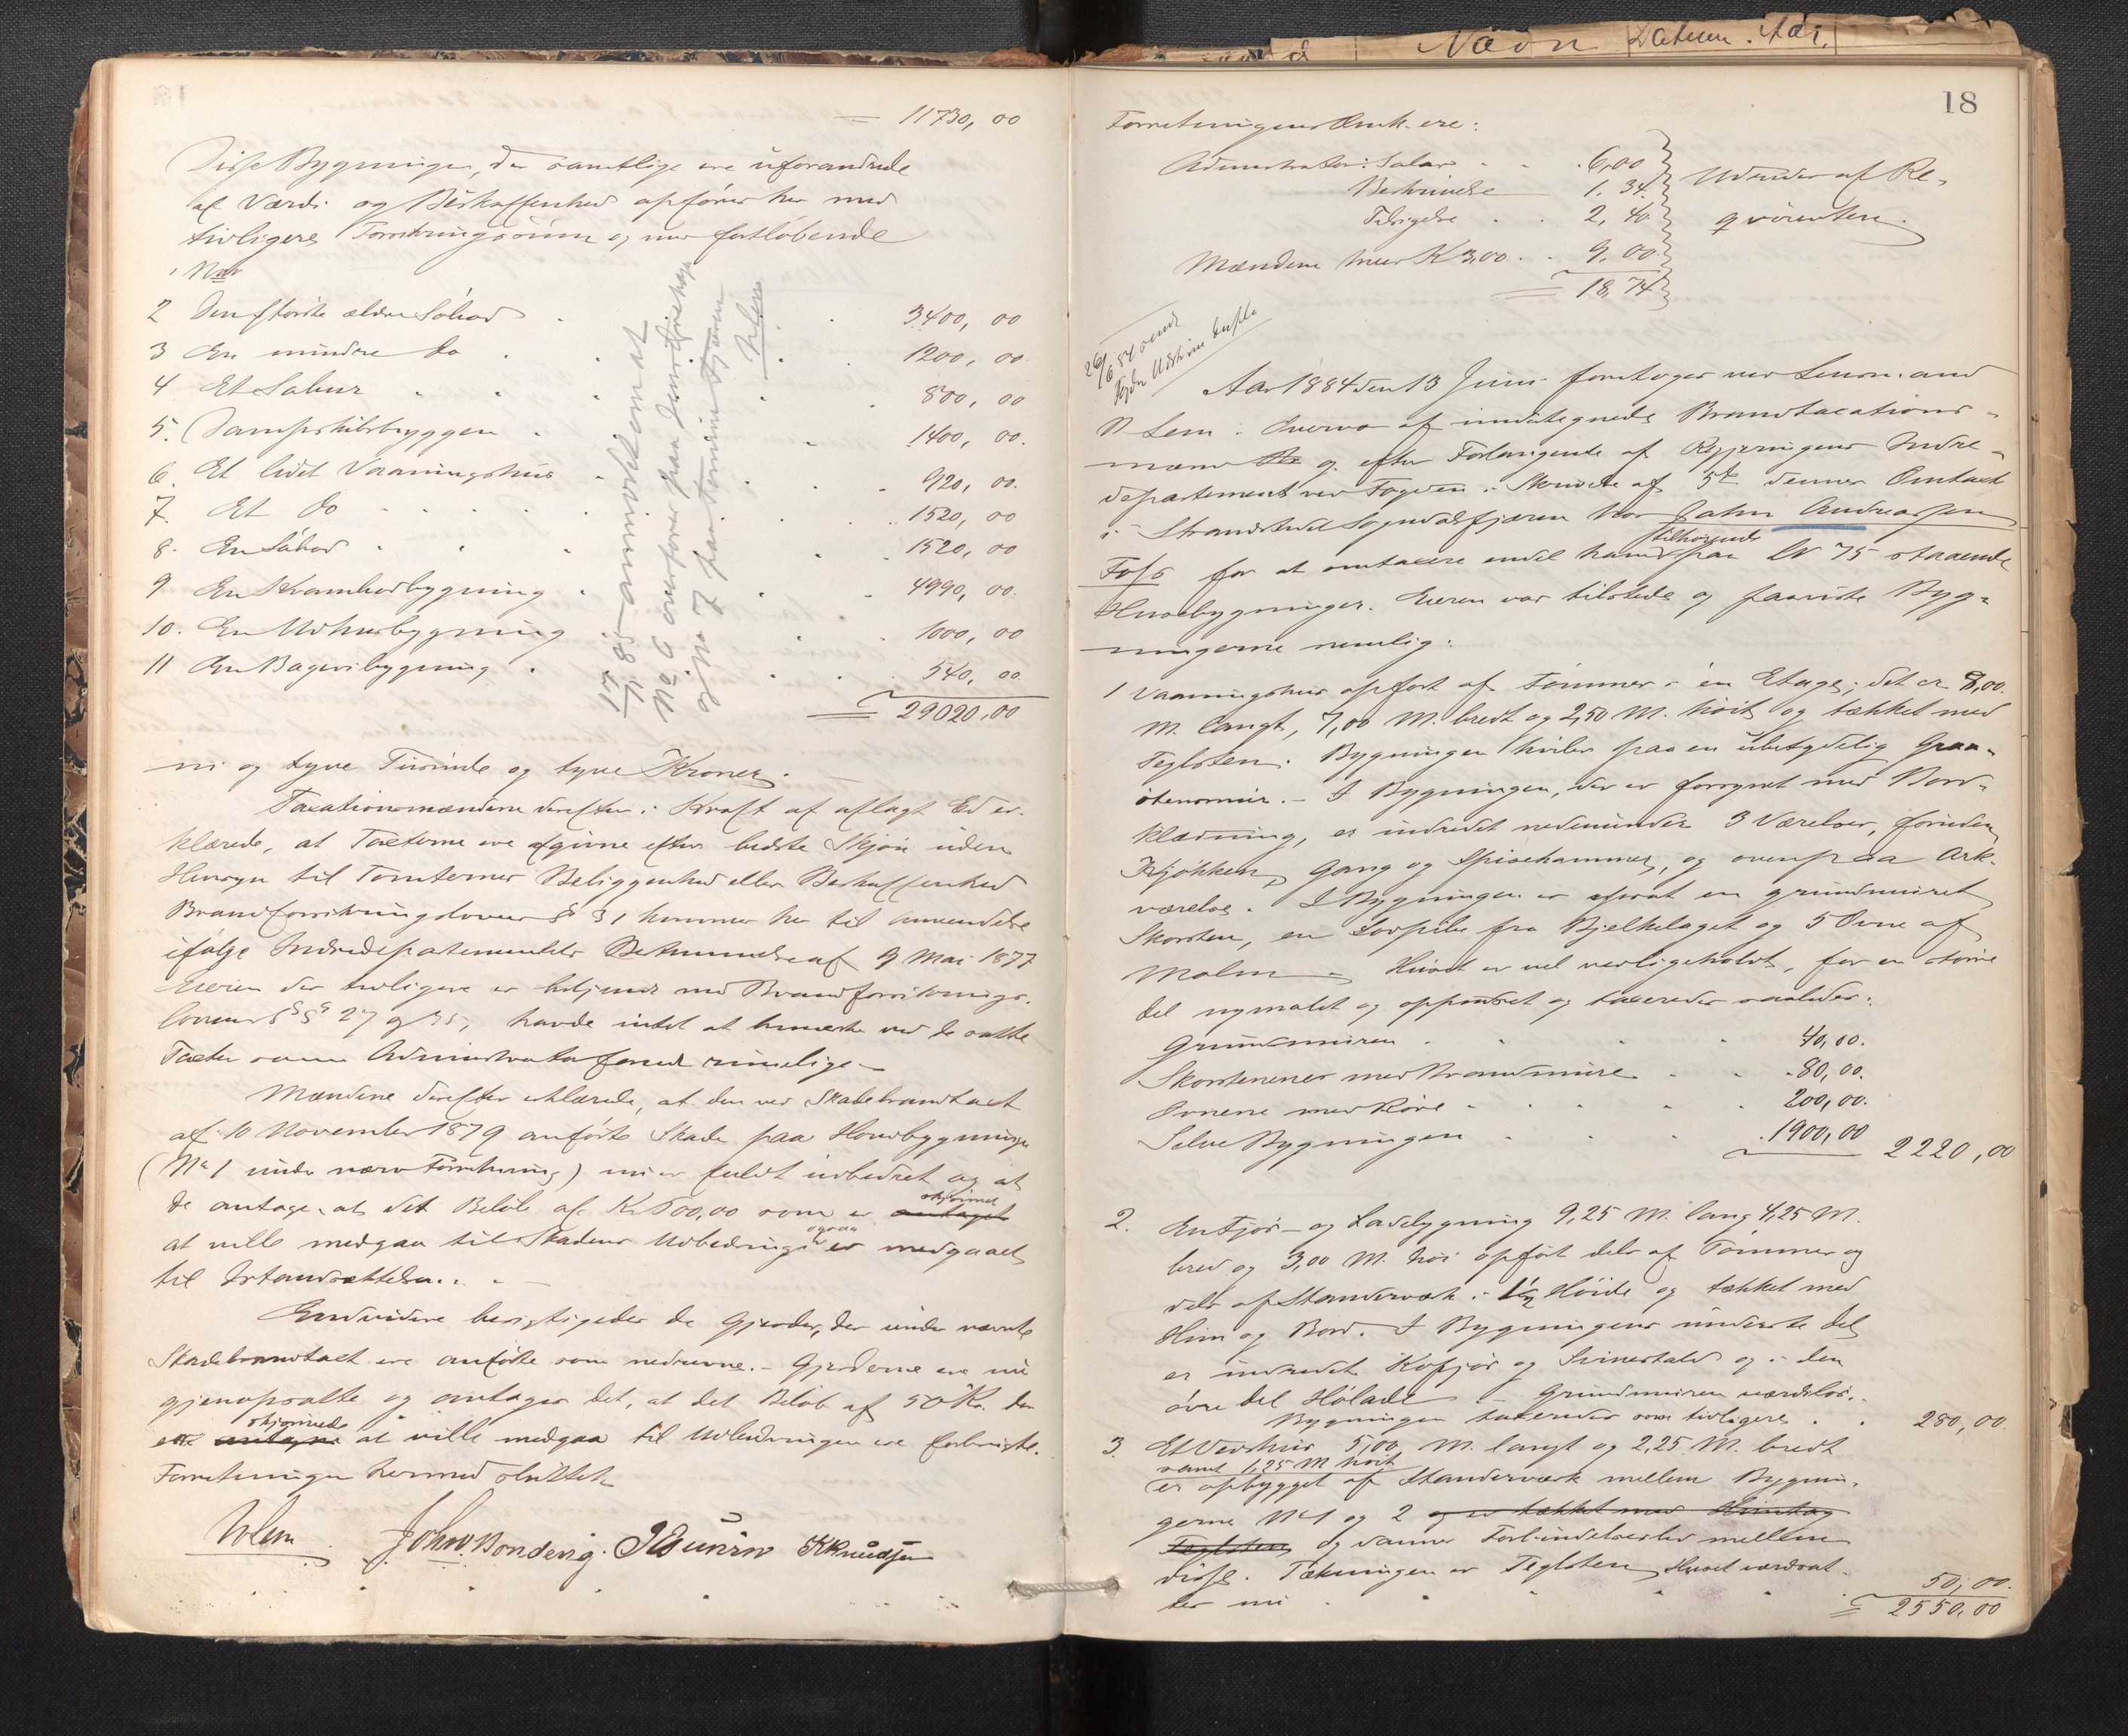 = 11730,00
Disse Bygninger, der samtlige ere uforandrede
af Værdi og Beskaffenhed opføres her med
tidligere Forsikringssum og med fortløbende
1 Nr
2 Den største ældre Søbod . . 3400,00
3 En mindre do . . . 1200,00
4 Et Sabur . . . . 800,00
5. Dampskibsbryggen . . 1400,00.
6. Et lidet Vaaningshus . . . 920,00.
7. Et do . . . . . 1520,00
8. En Søbod . . . . 1520,00
9 En Krambodbygning . . . 4990,00.
10. En Udhusbygning . . . 1000,00
11 En Bageribygning . . . 540,00.
= 29020,00
17/7 85 anmodet om at
No 6 overføres paa Henrik
og No 7 paa Tormin Fjæren
WLem
ni og tyve Tusinde og tyve Kroner. —
Taxationsmændene derefter i Kraft af aflagt Ed er-
klærede, at Taxterne ere afgivne efter bedste Skjøn uden
Hensyn til Tomternes Beliggenhed eller Beskaffenhed
Brandforsikringslovens § 31 kommer her til Anvendelse
ifølge Indredepartementets Bestemmelse af 9 Mai 1877
Eieren der tidligere er bekjendt med Brandforsikrings-
lovens §§ 27 og 35, havde intet at bemærke ved de satte
Taxter som Administrator fandt rimelige —
Mændene derefter erklærede, at den ved Skadebrandtaxt
af 10 November 1879 anførte Skade paa Hovedbygningen
(No 1 under nærv Forretning) nu er fuldt udbedret og at
de antage at det Beløb af Kr 500,00 som er antaget skjønnet
at ville medgaa til Skadens Udbedring ogsaa er medgaaet
til Istandsættelsen. . —
Endvidere besigtigedes de Gjerder, der under nævnte
Skadebrandtaxt ere anførte som nedrevne. — Gjerderne ere nu
gjenopsatte og antages det, at det Beløb af 50 Kr. der
ere antagne skjønnede at ville medgaa til Udbedringen ere forbrugte.
Forretningen hermed sluttet
WLem John Bondevig. KKnudsen
18
Nævn Datum. Aar.
Forretningens Omk. ere:
Administrator: Salær . . 6,00
Beskrivelse 1.34
Tilsigelse . . 2,40
Mændene hver K 3,00 . . 9,00
= 18,74
Udredes af Re-
qvirenten.
26/6 84 sendt
Fogden Udskrive Dupla
Aar 1884 den 13 Juni foretoges ved Lensmand
W Lem i Overvær af undertegnede Brandtaxations-
mænd og efter Forlangende af Regjeringens Indre-
departement ved Fogden i Skrivelse af 5te dennes Omtaxt
i Strandstedet Sogndalsfjæren hos John Andreassen
Foss for at omtaxere endel ham tilhørende paa LN 75 staaende
Husebygninger. Eieren var tilstede og paaviste Byg-
ningerne nemlig:
1 Vaaningshus opført af Tømmer i en Etage; det er 8,00.
M. langt, 7,00 M. bredt og 2,50 M. høit og tækket med
Teglsten. Bygningen hviler paa en ubetydelig Graa-
stensmur. — I Bygningen, der er forsynet med Bord-
klædning, er indredet nedenunder 3 Værelser, foruden
Kjøkken, Gang og Spisekammer, og ovenpaa Ark-
værelse. I Bygningen er opsat en grundmuret
Skorsten, en Sodpibe fra Bjelkelaget og 5 Ovne af
Malm — Huset er vel vedligeholdt, for en større
del nymalet og oppudset og taxeredes saaledes:
Grundmuren . . . . 40,00.
Skorstenene med Brandmure . . 80,00.
Ovnene med Rør . . . . 200,00.
Selve Bygningen . . . 1900,00 2220,00
2. En Fjøs- og Ladebygning 9,25 M. lang 4,25 M.
bred og 3,00 M. høi opført dels af Tømmer og
dels af Standerværk i 1½ Høide og tækket med
Him og Bord. I Bygningens underste del
er indredet Kofjøs og Svinestald og i den
øvre del Hølade — Grundmuren værdiløs.
Bygningen taxeredes som tidligere . . 280,00.
3. Et Vedhus 5,00 M. langt og 2,25 M. bredt
samt 1,25 M høit
er opbygget af Standerværk mellem Bygnin-
gerne No 1 og 2 og er tækket med Himtag
Teglsten og danner Forbindelsesled mellem
disse. Tækningen er Teglsten, Huset værdsat-
tes nu . . . . 50,00.
= 2550,00